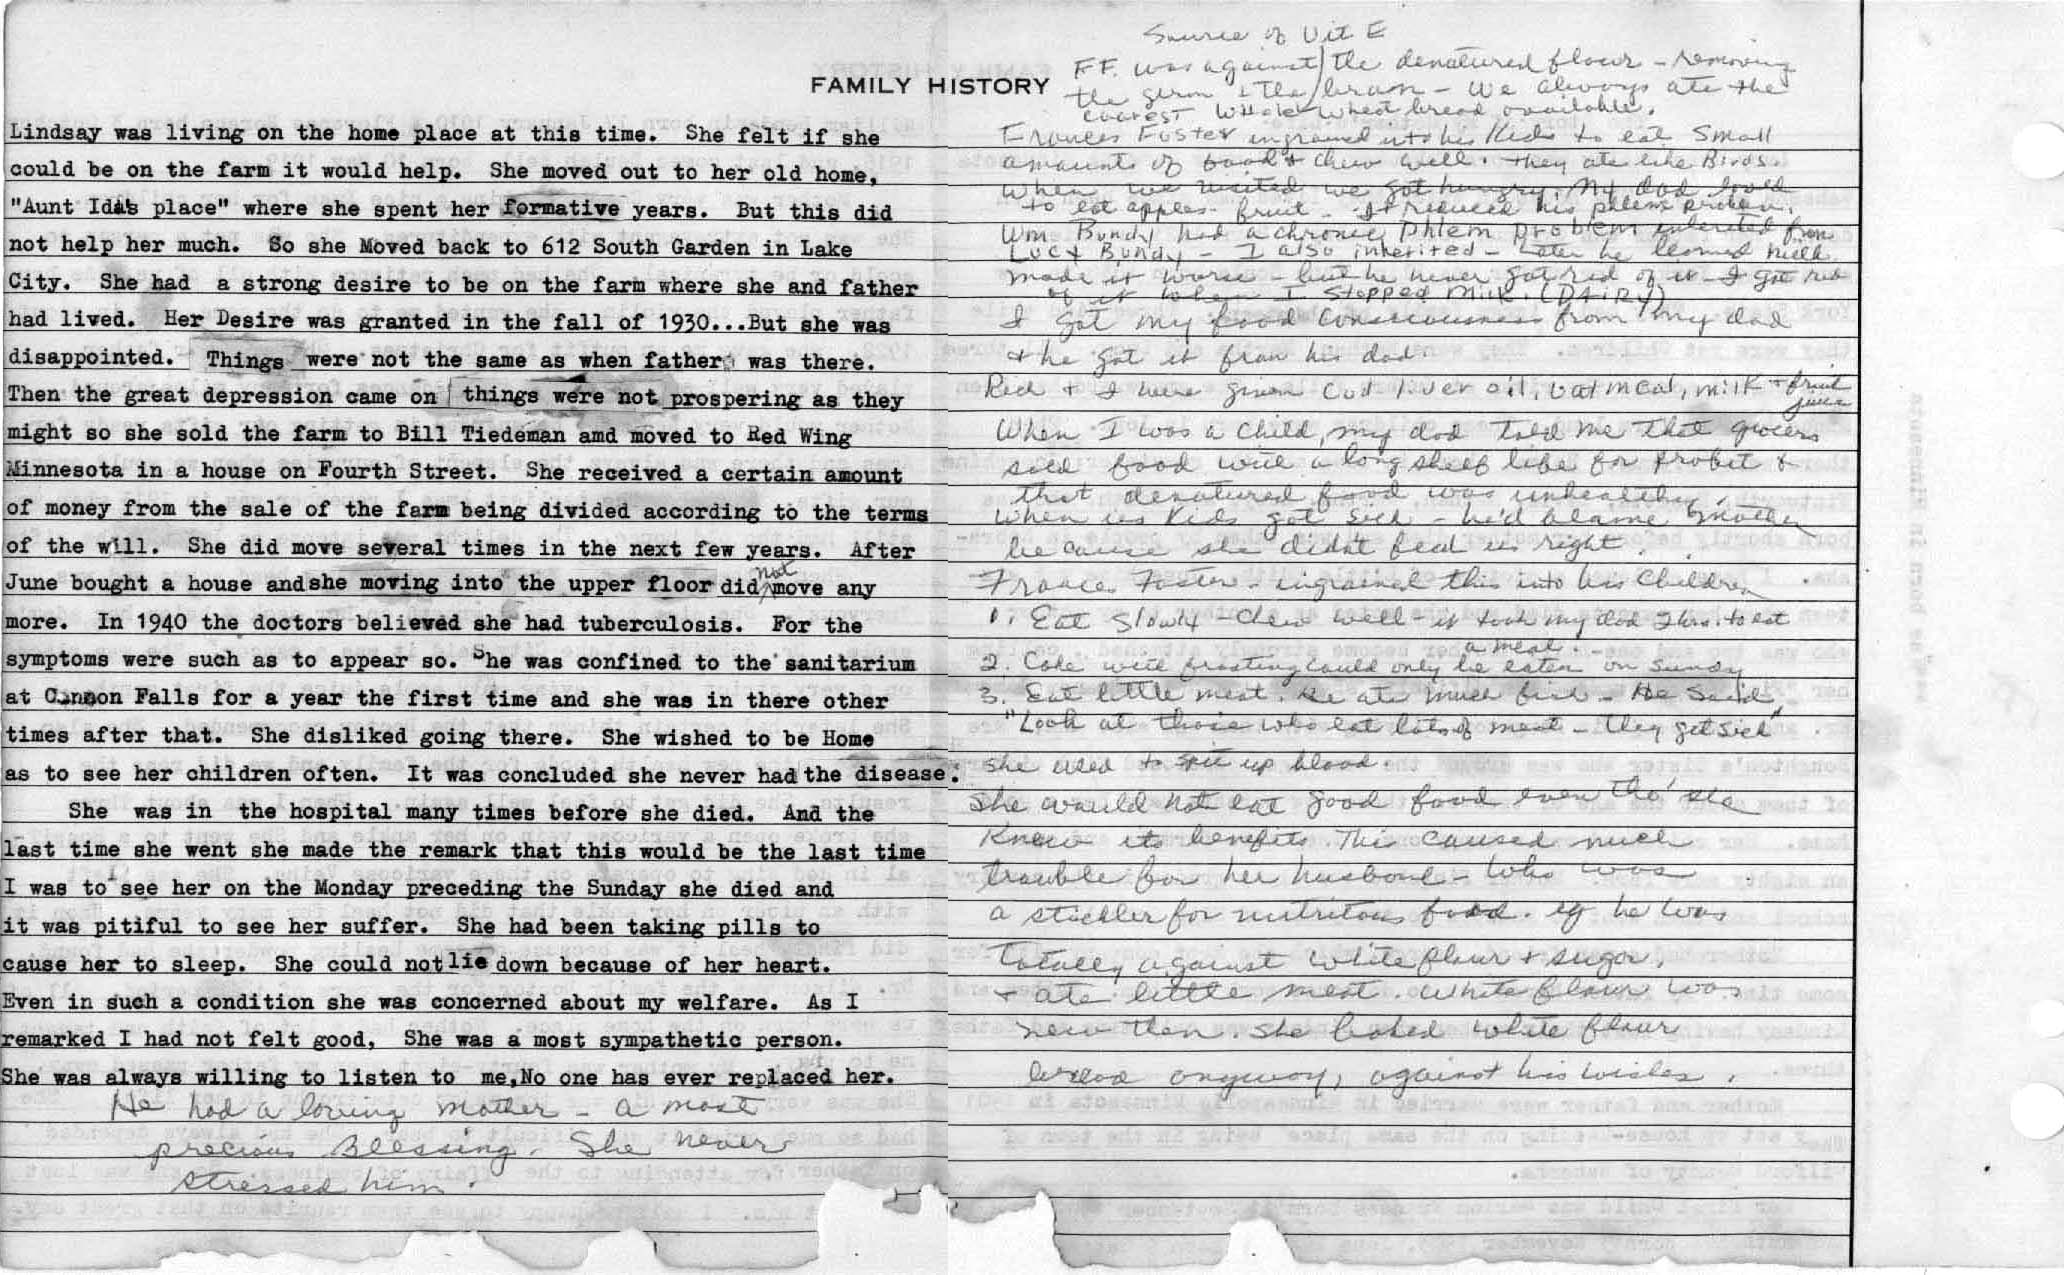 FAMILY HISTORY
Lindsay was living on the home place at this time. She felt if she
could be on the farm it would help. She moved out to her old home,
"Aunt Ida's place" where she spent her formative years. But this did
not help her much. So she Moved back to 612 South Garden in Lake
City. She had a strong desire to be on the farm where she and father
had lived. Her Desire was granted in the fall of 1930...But she was
disappointed. Things were not the same as when father was there.
Then the great depression came on things were not prospering as they
might so she sold the farm to Bill Tiedeman amd moved to Red Wing
Minnesota in a house on Fourth Street. She received a certain amount
of money from the sale of the farm being divided according to the terms
of the will. She did move several times in the next few years. After
June bought a house and she moving into the upper floor did not move any
more. In 1940 the doctors believed she had tuberculosis. For the
symptoms were such as to appear so. She was confined to the sanitarium
at Cannon Falls for a year the first time and she was in there other
times after that. She disliked going there. She wished to be Home
as to see her children often. It was concluded she never had the disease.
She was in the hospital many times before she died. And the
last time she went she made the remark that this would be the last time
I was to see her on the Monday preceding the Sunday she died and
it was pitiful to see her suffer. She had been taking pills to
cause her to sleep. She could not lie down because of her heart.
Even in such a condition she was concerned about my welfare. As I
remarked I had not felt good, She was a most sympathetic person.
She was always willing to listen to me,No one has ever replaced her.
He had a loving mother - a most
precious Blessing. She never
stressed him.
Source of Vit E
F.F. was against the denatured flour - removing
the germ & the bran - We always ate the
whole wheat bread available.
Frances Foster ingrained into his Kids to eat small
amounts of food & chew well. They ate like Birds.
When we visited we got hungry. My dad loved
to eat apples - fruit - It reduced his phlem problem.
Wm Bundy had a chronic phlem problem inherited from
Lucy Bundy - I also inherited - Later he learned milk
made it worse - but he never got rid of it - I got rid
of it when I stopped milk. (DAIRY)
I got my food consciousness from my dad
& he got it from his dad
Red & I were given cod liver oil, oatmeal, milk & fruit
juice
When I was a child, my dad told me that grocers
sold food with a long shelf life for profit &
that denatured food was unhealthy.
When us kids got sick - he'd blame mother
because she didnt feed us right.
Frances Foster - ingrained this into his children
1. Eat slowly - chew well - it took my dad 2 hrs. to eat
a meal.
2. Cake with frosting could only be eaten on Sunday
3. Eat little meat. He ate much fish - He said
"Look at those who eat lots of meat - they get sick"
she used to spit up blood
She would not eat good food even tho' she
Knew its benefits. This caused much
trouble for her husband - who was
a stickler for nutritous food. eg he was
totally against white flour & sugar,
& ate little meat. White flour was
new then. She baked white flour
bread anyway, against his wishes.